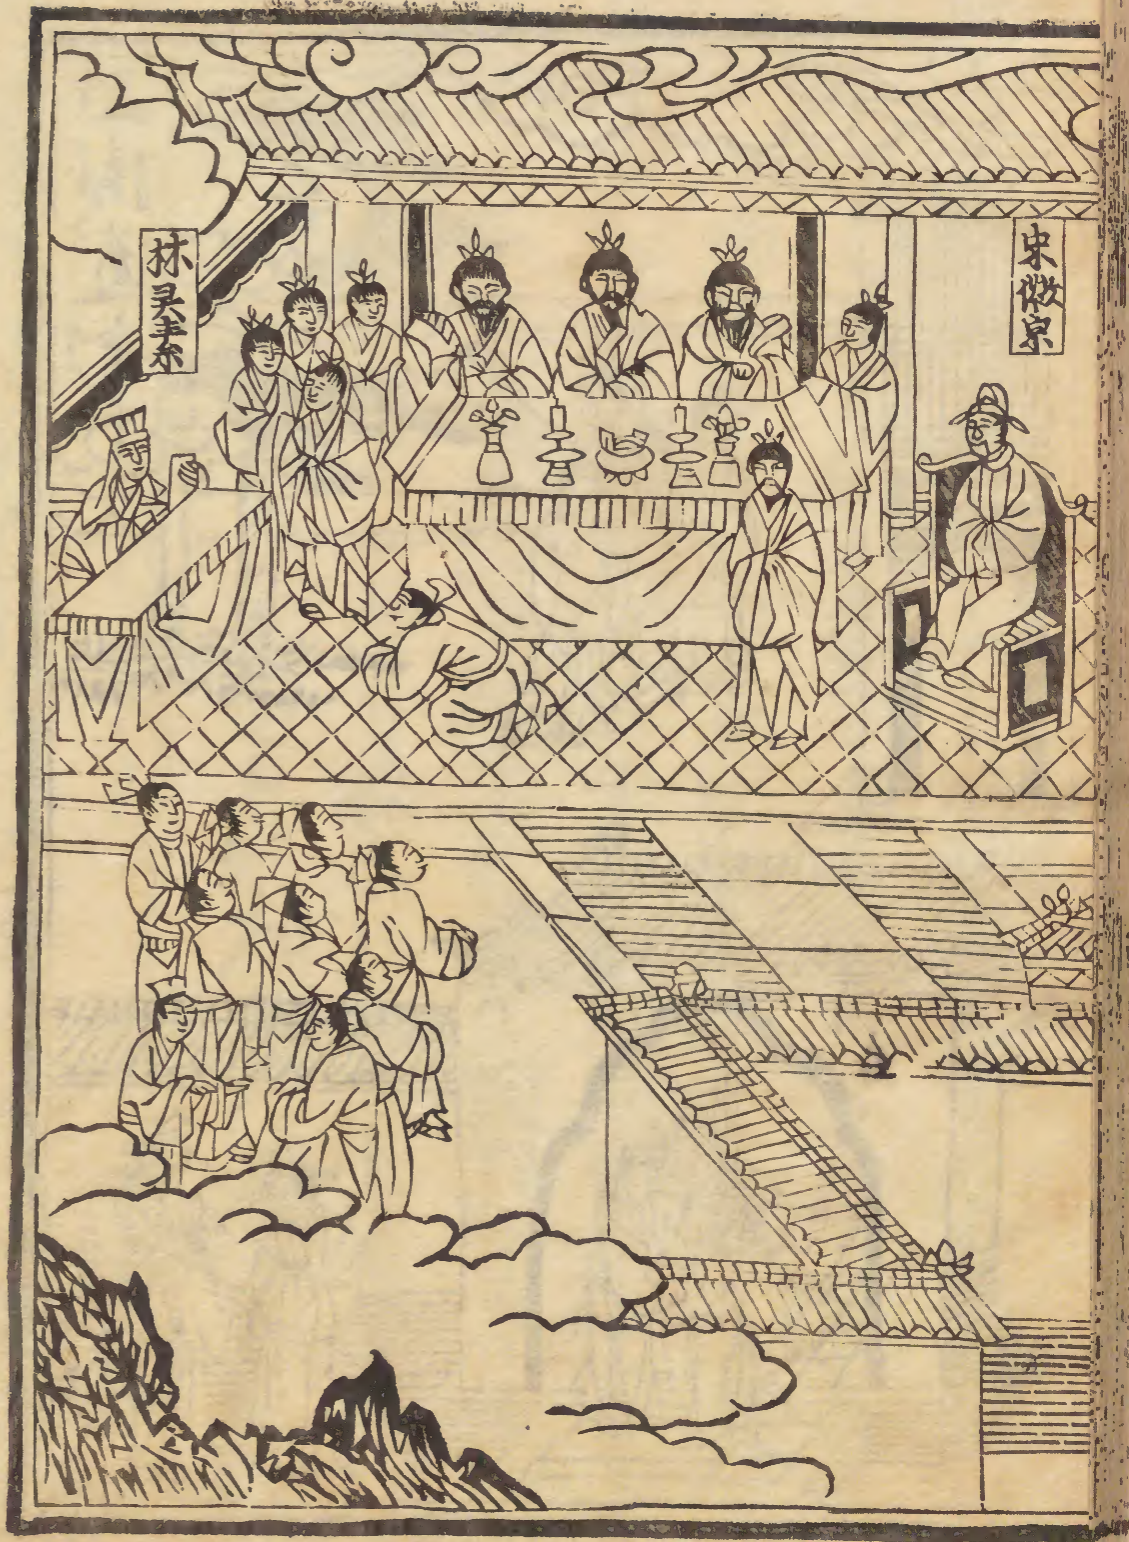 宋徽宗
林灵素